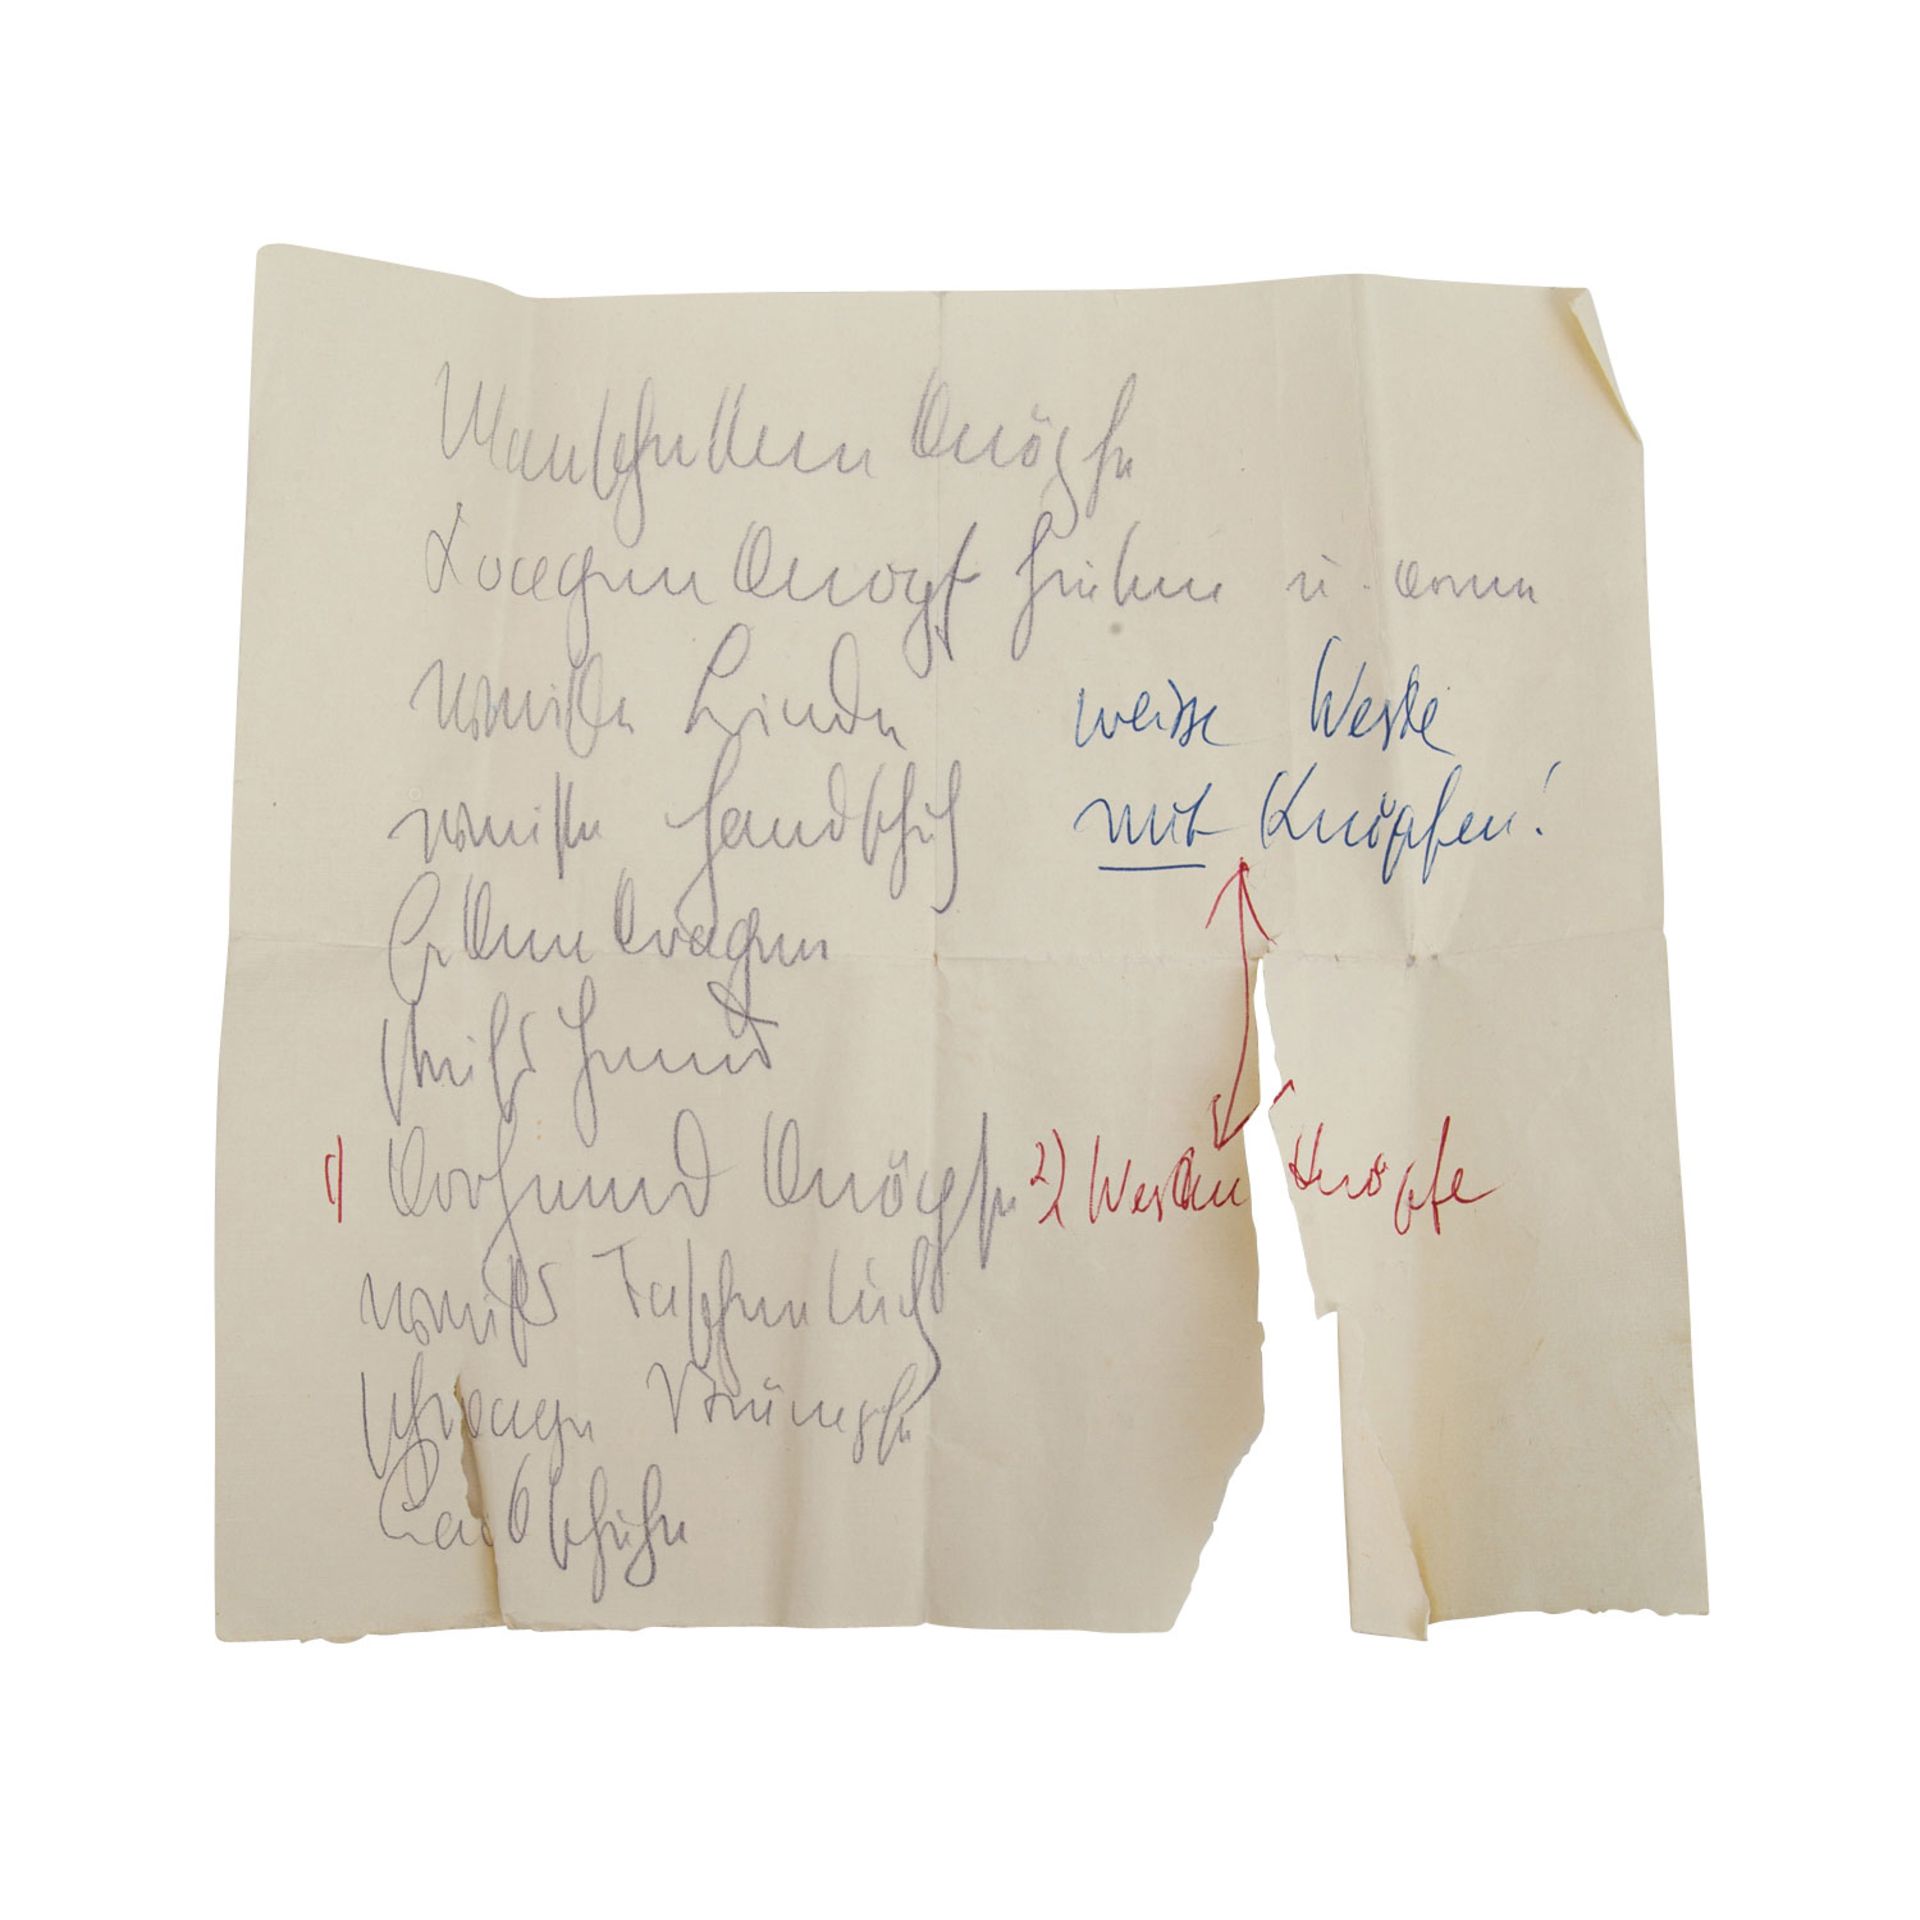 Manschetten Knöpfe
Kragen Knopf hinten u. vorn
weiße Binde
weisse Weste
weiße Handschuh
mit Knöpfen!
Eckenkragen
steifes Hemd
1) Vorhemd Knöpfe 2) Westen Knöpfe
weißes Taschentuch
schwarze Strümpfe
Lackschuhe